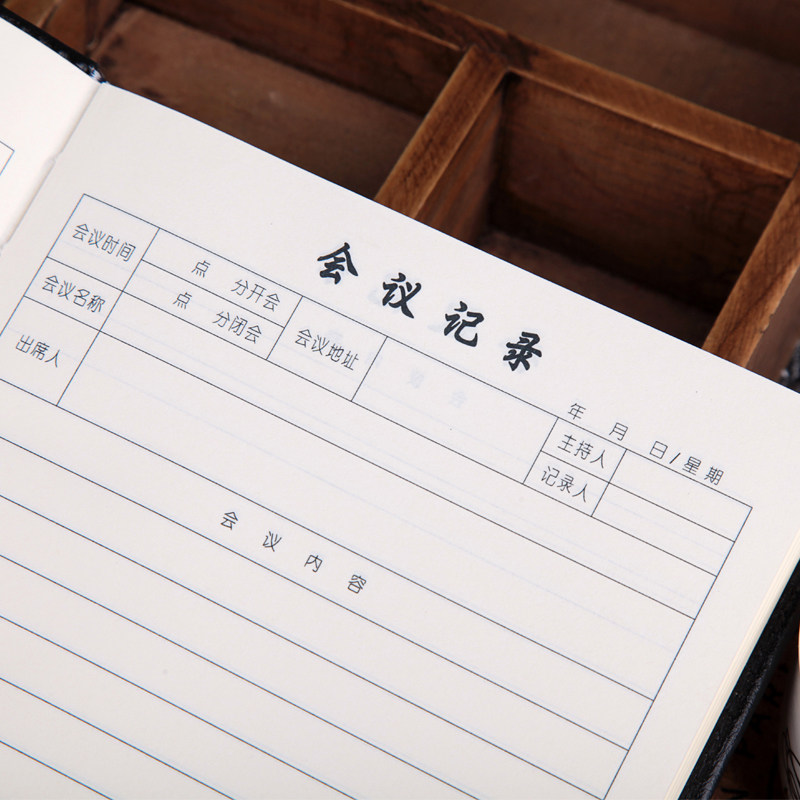 会议记录
年 月 日/星期
会议时间 点 分开会 会议地址 主持人
点 分闭会 记录人
会议名称
出席人
会议内容